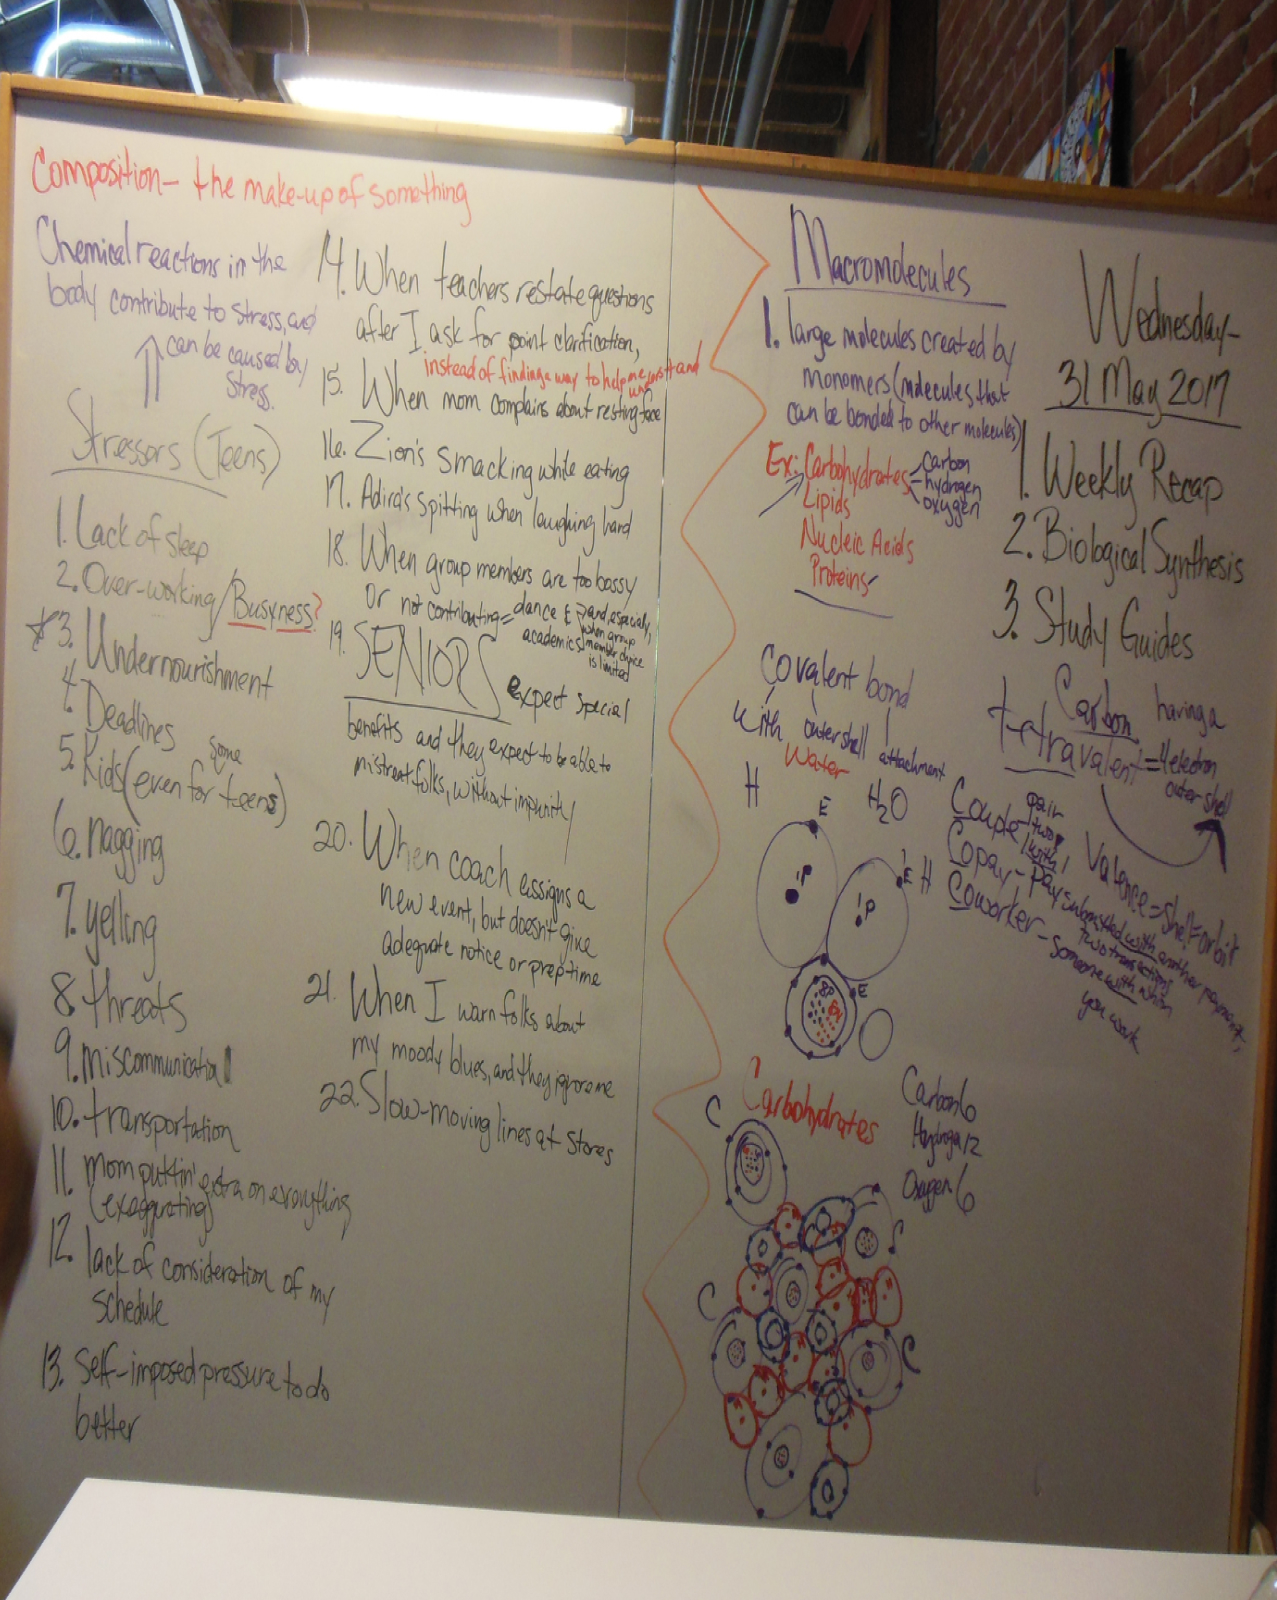 Composition- the make-up of something
Chemical reactions in the
body contribute to stress, and
can be caused by
stress.
Stressors (Teens)
1. Lack of sleep
2. Over-working/Busyness?
3. Undernourishment
4. Deadlines
5. Kids (even for some teens)
6. nagging
7. yelling
8. threats
9. miscommunication
10. transportation
11. mom puttin' extra on everything
(exaggerating)
12. lack of consideration of my
schedule
13. Self-imposed pressure to do
better
14. When teachers restate questions
after I ask for point clarification,
instead of finding a way to help me understand
15. When mom complains about resting face
16. Zion's smacking while eating
17. Adira's spitting when laughing hard
18. When group members are too bossy
or not contributing = dance &
academics
and, especially,
when group
member choice
is limited
19. SENIORS expect special
benefits and they expect to be able to
mistreat folks, without impunity
20. When coach assigns a
new event, but doesn't give
adequate notice or prep time
21. When I warn folks about
my moody blues, and they ignore me
22. Slow-moving lines at stores
Macromolecules
1. large molecules created by
monomers (molecules that
can be bonded to other molecules)
Ex: Carbohydrates
carbon
hydrogen
oxygen
Lipids
Nucleic Acids
Proteins
Covalent bond
with outer shell attachment
Water
H H2O
E
1P
1P
E H
8P
8N
E
Carbohydrates
Carbon 6
Hydrogen 12
Oxygen 6
C
C
C
C
Wednesday-
31 May 2017
1. Weekly Recap
2. Biological Synthesis
3. Study Guides
Carbon
tetravalent = having a
4 electron
outer shell
Valence = shell = orbit
Couple pair
two
with
Copay - pay submitted with another payment,
two transactions
Coworker - someone with whom
you work